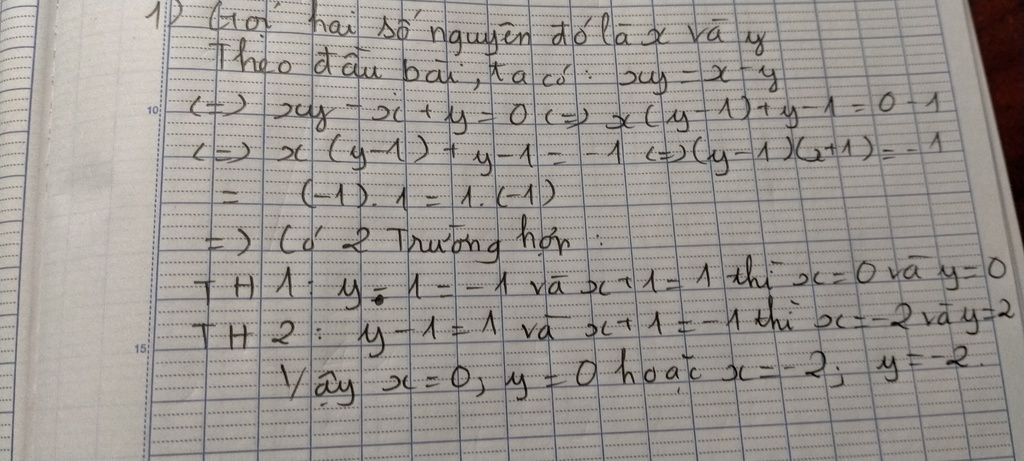 1) Gọi hai số nguyên đó là x và y
Theo đầu bài, ta có: xy = x - y
10 <=> xy - x + y = 0 <=> x(y-1) + y-1 = 0-1
<=> x (y-1) + y-1 = -1 <=> (y-1)(x+1) = -1
= (-1).1 = 1.(-1)
=> Có 2 Trường hợp:
TH1: y-1 = -1 và x+1 = 1 thì x=0 và y=0
TH2: y-1=1 và x+1=-1 thì x=-2 và y=2
15 Vậy x=0; y=0 hoặc x=-2; y=-2.